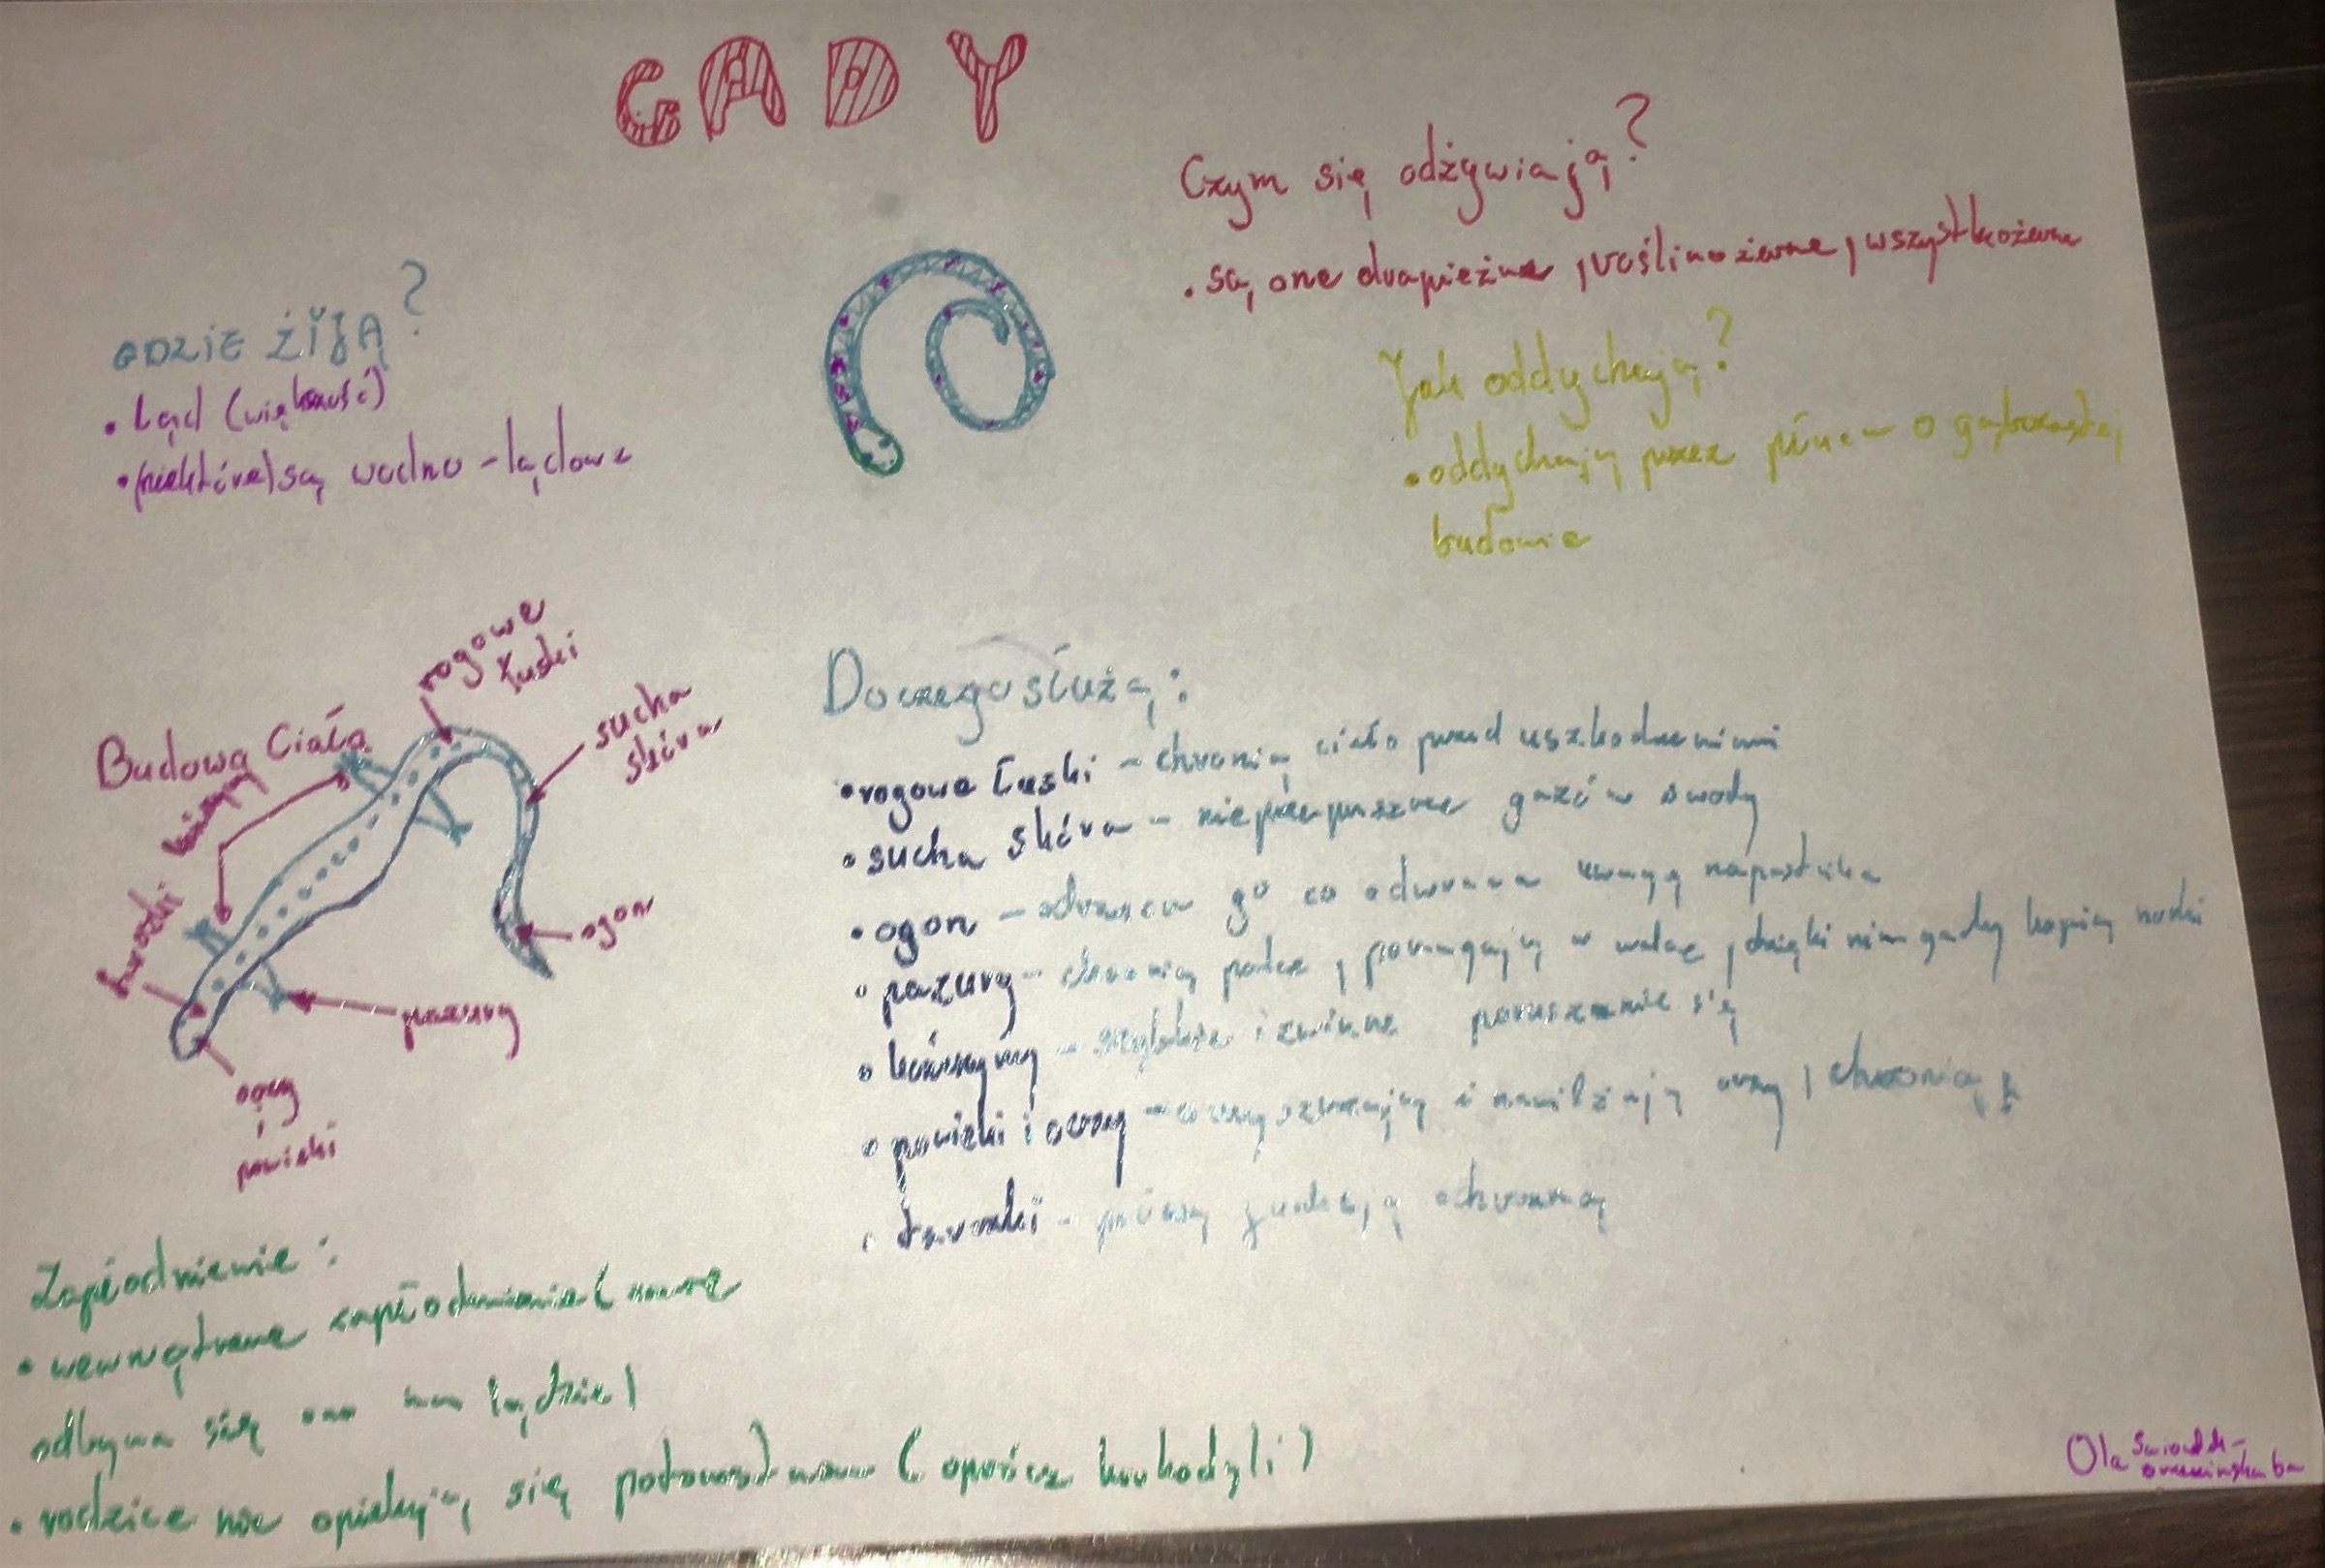 GADY
GDZIE ŻYJĄ?
• Ląd (większość)
• (niektóre) są wodno-lądowe
Czym się odżywiają?
• są one drapieżne, roślinożerne, wszystkożerne
Jak oddychają?
• oddychają przez płuca o gąbczastej
budowie
Budowa Ciała
rogowe
łuski
sucha
skóra
ogon
pazury
oczy
i
powieki
tarczki
kończyny
Do czego służą:
• rogowe łuski - chronią ciało przed uszkodzeniami
• sucha skóra - nieprzepuszcza gazów i wody
• ogon - odrzuca go co odwraca uwagę napastnika
• pazury - chronią palce, pomagają w walce, dzięki nim gady kopią norki
• kończyny - szybkie i zwinne poruszanie się
• powieki i oczy - oczyszczają i nawilżają oczy, chronią
• tarczki - pełnią funkcję ochronną
Zapłodnienie:
• wewnątrzne zapłodnienie (
odbywa się ono na lądzie)
• rodzice nie opiekują się potomstwem (oprócz krokodyli)
Ola